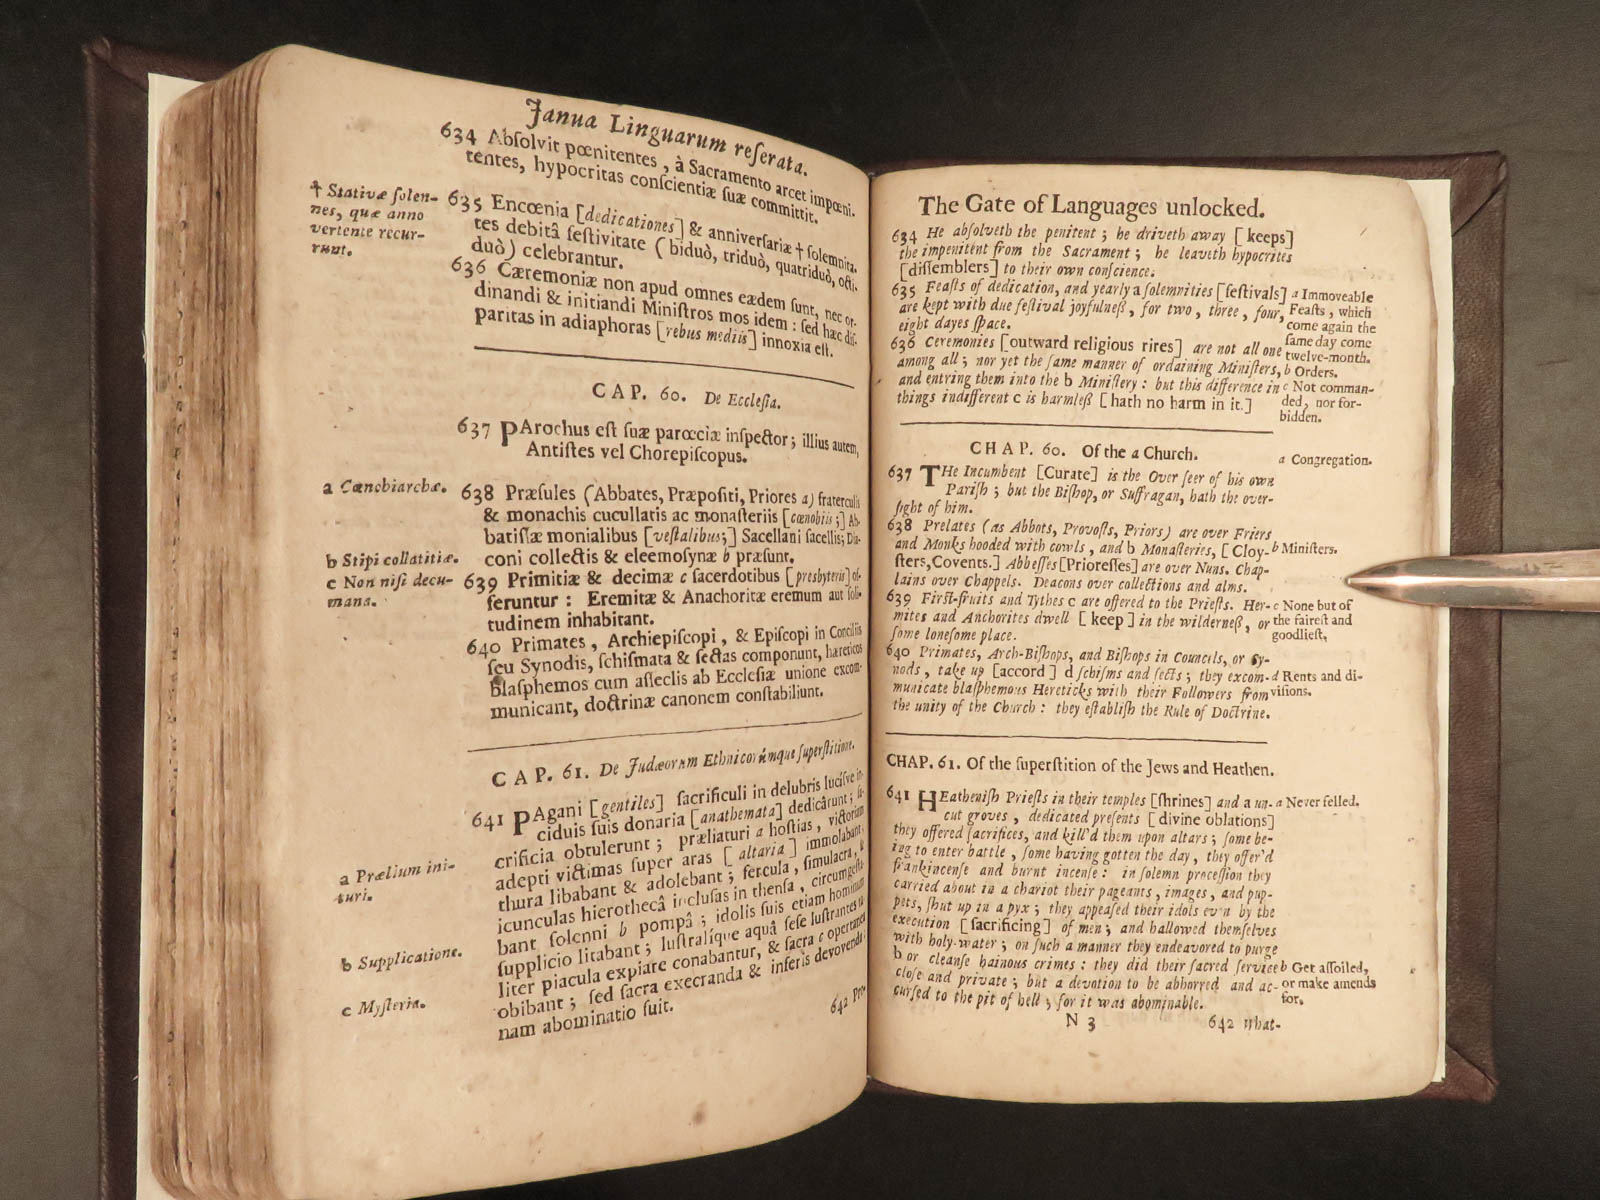 Janua Linguarum reſerata.
634 Abſolvit pœnitentes, à Sacramento arcet impœni-
tentes, hypocritas conſcientiæ ſuæ committit.
✝ Stativæ ſolen-
nes, quæ anno
vertente recur-
runt.
635 Encœnia [dedicationes] & anniverſariæ ✝ ſolemnita-
tes debitâ feſtivitate (biduò, triduò, quatriduò, octi-
duò) celebrantur.
636 Cæremoniæ non apud omnes eædem ſunt, nec or-
dinandi & initiandi Miniſtros mos idem: ſed hæc diſ-
paritas in adiaphoras [rebus mediis] innoxia eſt.
CAP. 60. De Eccleſia.
637 PArochus eſt ſuæ parœciæ inſpector; illius autem,
Antiſtes vel Chorepiſcopus.
a Cœnobiarchæ.
638 Præſules (Abbates, Præpoſiti, Priores a) fraterculis
& monachis cucullatis ac monaſteriis [cœnobiis;] Ab-
batiſſæ monialibus [veſtalibus;] Sacellani ſacellis; Dia-
coni collectis & eleemoſynæ b præſunt.
b Stipi collatitiæ.
c Non niſi decu-
mana.
639 Primitiæ & decimæ c ſacerdotibus [presbyteris] of-
feruntur: Eremitæ & Anachoritæ eremum aut ſoli-
tudinem inhabitant.
640 Primates, Archiepiſcopi, & Epiſcopi in Conciliis
ſeu Synodis, ſchiſmata & ſectas componunt, hæreticos
blaſphemos cum aſſeclis ab Eccleſiæ unione excom-
municant, doctrinæ canonem conſtabiliunt.
CAP. 61. De Judæorum Ethnicorúmque ſuperſtitione.
641 PAgani [gentiles] ſacrificuli in delubris luciſve in-
ciduis ſuis donaria [anathemata] dedicârunt; ſa-
crificia obtulerunt; præliaturi a hoſtias, victoriam
adepti victimas ſuper aras [altaria] immolabant,
thura libabant & adolebant; fercula, ſimulacra, &
icunculas hierothecâ incluſas in thenſa, circumgeſta-
bant ſolenni b pompâ; idolis ſuis etiam hominum
ſupplicio litabant; luſtralíque aquâ ſeſe luſtrantes ta-
liter piacula expiare conabantur, & ſacra c opertanea
obibant; ſed ſacra execranda & inferis devovenda,
nam abominatio fuit.
a Prælium ini-
turi.
b Supplicatione.
c Myſteria.
642 Pro-
The Gate of Languages unlocked.
634 He abſolveth the penitent; he driveth away [keeps]
the impenitent from the Sacrament; he leaveth hypocrites
[diſſemblers] to their own conſcience.
635 Feaſts of dedication, and yearly a ſolemnities [feſtivals]
are kept with due feſtival joyfulneß, for two, three, four,
eight dayes ſpace.
636 Ceremonies [outward religious rires] are not all one
among all; nor yet the ſame manner of ordaining Miniſters,
and entring them into the b Miniſtery: but this difference in
things indifferent c is harmleß [hath no harm in it.]
a Immoveable
Feaſts, which
come again the
ſame day come
twelve-month.
b Orders.
c Not comman-
ded, nor for-
bidden.
CHAP. 60. Of the a Church.
a Congregation.
637 THe Incumbent [Curate] is the Over ſeer of his own
Pariſh; but the Biſhop, or Suffragan, hath the over-
ſight of him.
638 Prelates (as Abbots, Provoſts, Priors) are over Friers
and Monks hooded with cowls, and b Monaſteries, [Cloy-
ſters, Covents.] Abbeſſes [Prioreſſes] are over Nuns. Chap-
lains over Chappels. Deacons over collections and alms.
b Miniſters.
639 Firſt-fruits and Tythes c are offered to the Prieſts. Her-
mites and Anchorites dwell [keep] in the wilderneß, or
ſome loneſome place.
c None but of
the faireſt and
goodlieſt,
640 Primates, Arch-Biſhops, and Biſhops in Councils, or Sy-
nods, take up [accord] d ſchiſms and ſects; they excom-
municate blaſphemous Hereticks with their Followers from
the unity of the Church: they eſtabliſh the Rule of Doctrine.
d Rents and di-
viſions.
CHAP. 61. Of the ſuperſtition of the Jews and Heathen.
641 HEatheniſh Prieſts in their temples [ſhrines] and a un-
cut groves, dedicated preſents [divine oblations]
they offered ſacrifices, and kill'd them upon altars; ſome be-
ing to enter battle, ſome having gotten the day, they offer'd
frankincenſe and burnt incenſe: in ſolemn proceſſion they
carried about in a chariot their pageants, images, and pup-
pets, ſhut up in a pyx; they appeaſed their idols even by the
execution [ſacrificing] of men; and hallowed themſelves
with holy water; on ſuch a manner they endeavored to purge
b or cleanſe hainous crimes: they did their ſacred ſervice
cloſe and private; but a devotion to be abhorred and ac-
curſed to the pit of hell; for it was abominable.
a Never felled.
b Get aſſoiled,
or make amends
for.
N 3
642 What-